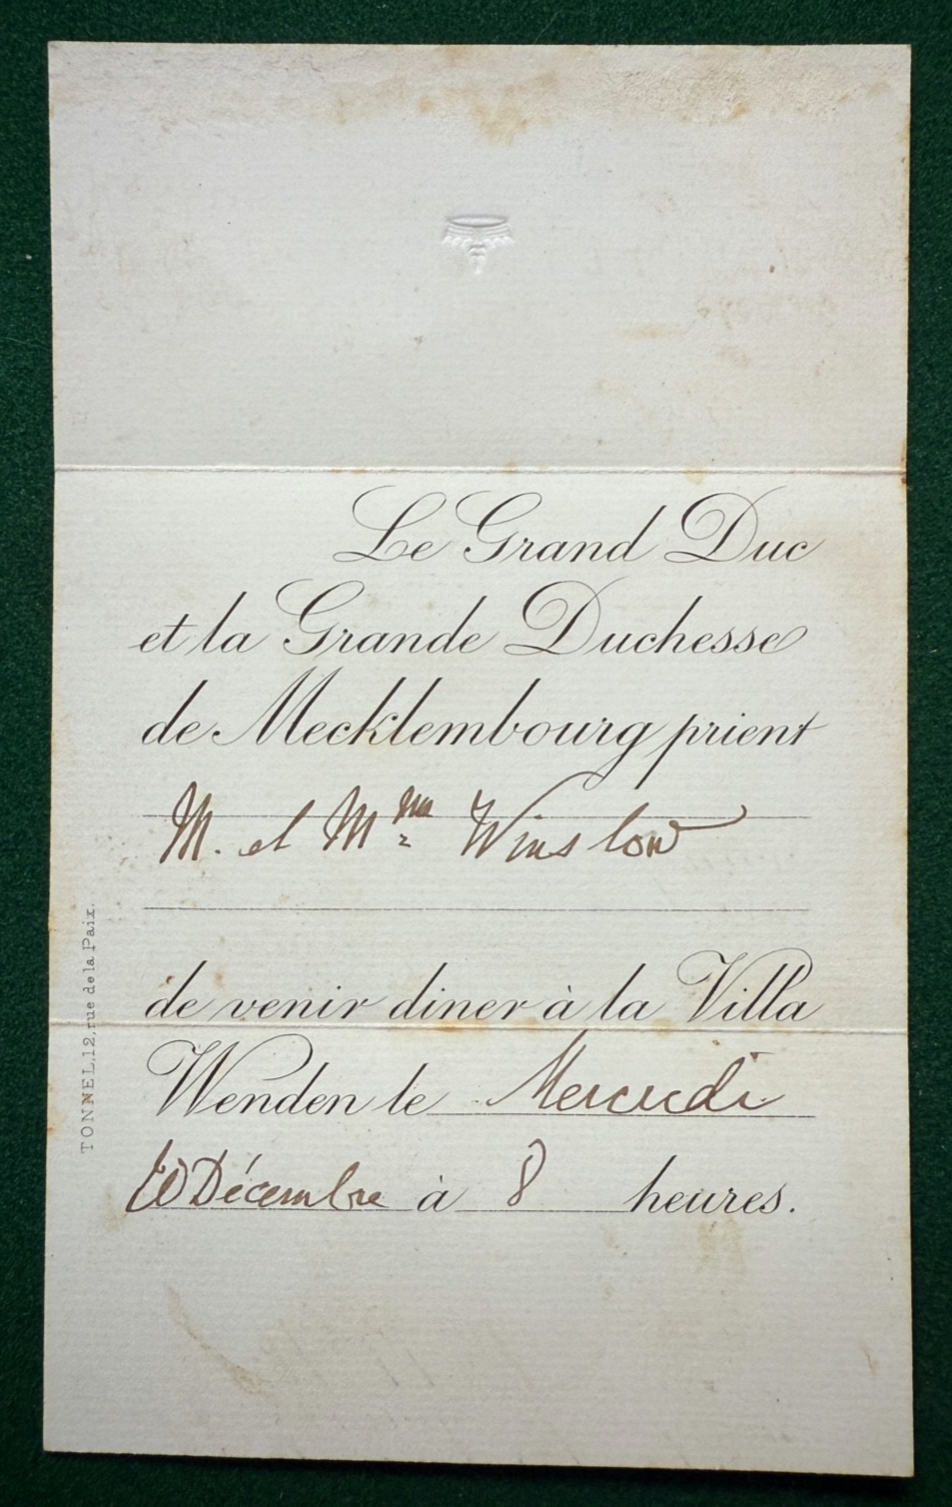 Le Grand Duc
et la Grande Duchesse
de Mecklembourg prient
M. et Mme Winslow
de venir diner à la Villa
Wenden le Mercredi
Décembre à 8 heures.
TONNEL, 12, rue de la Paix.